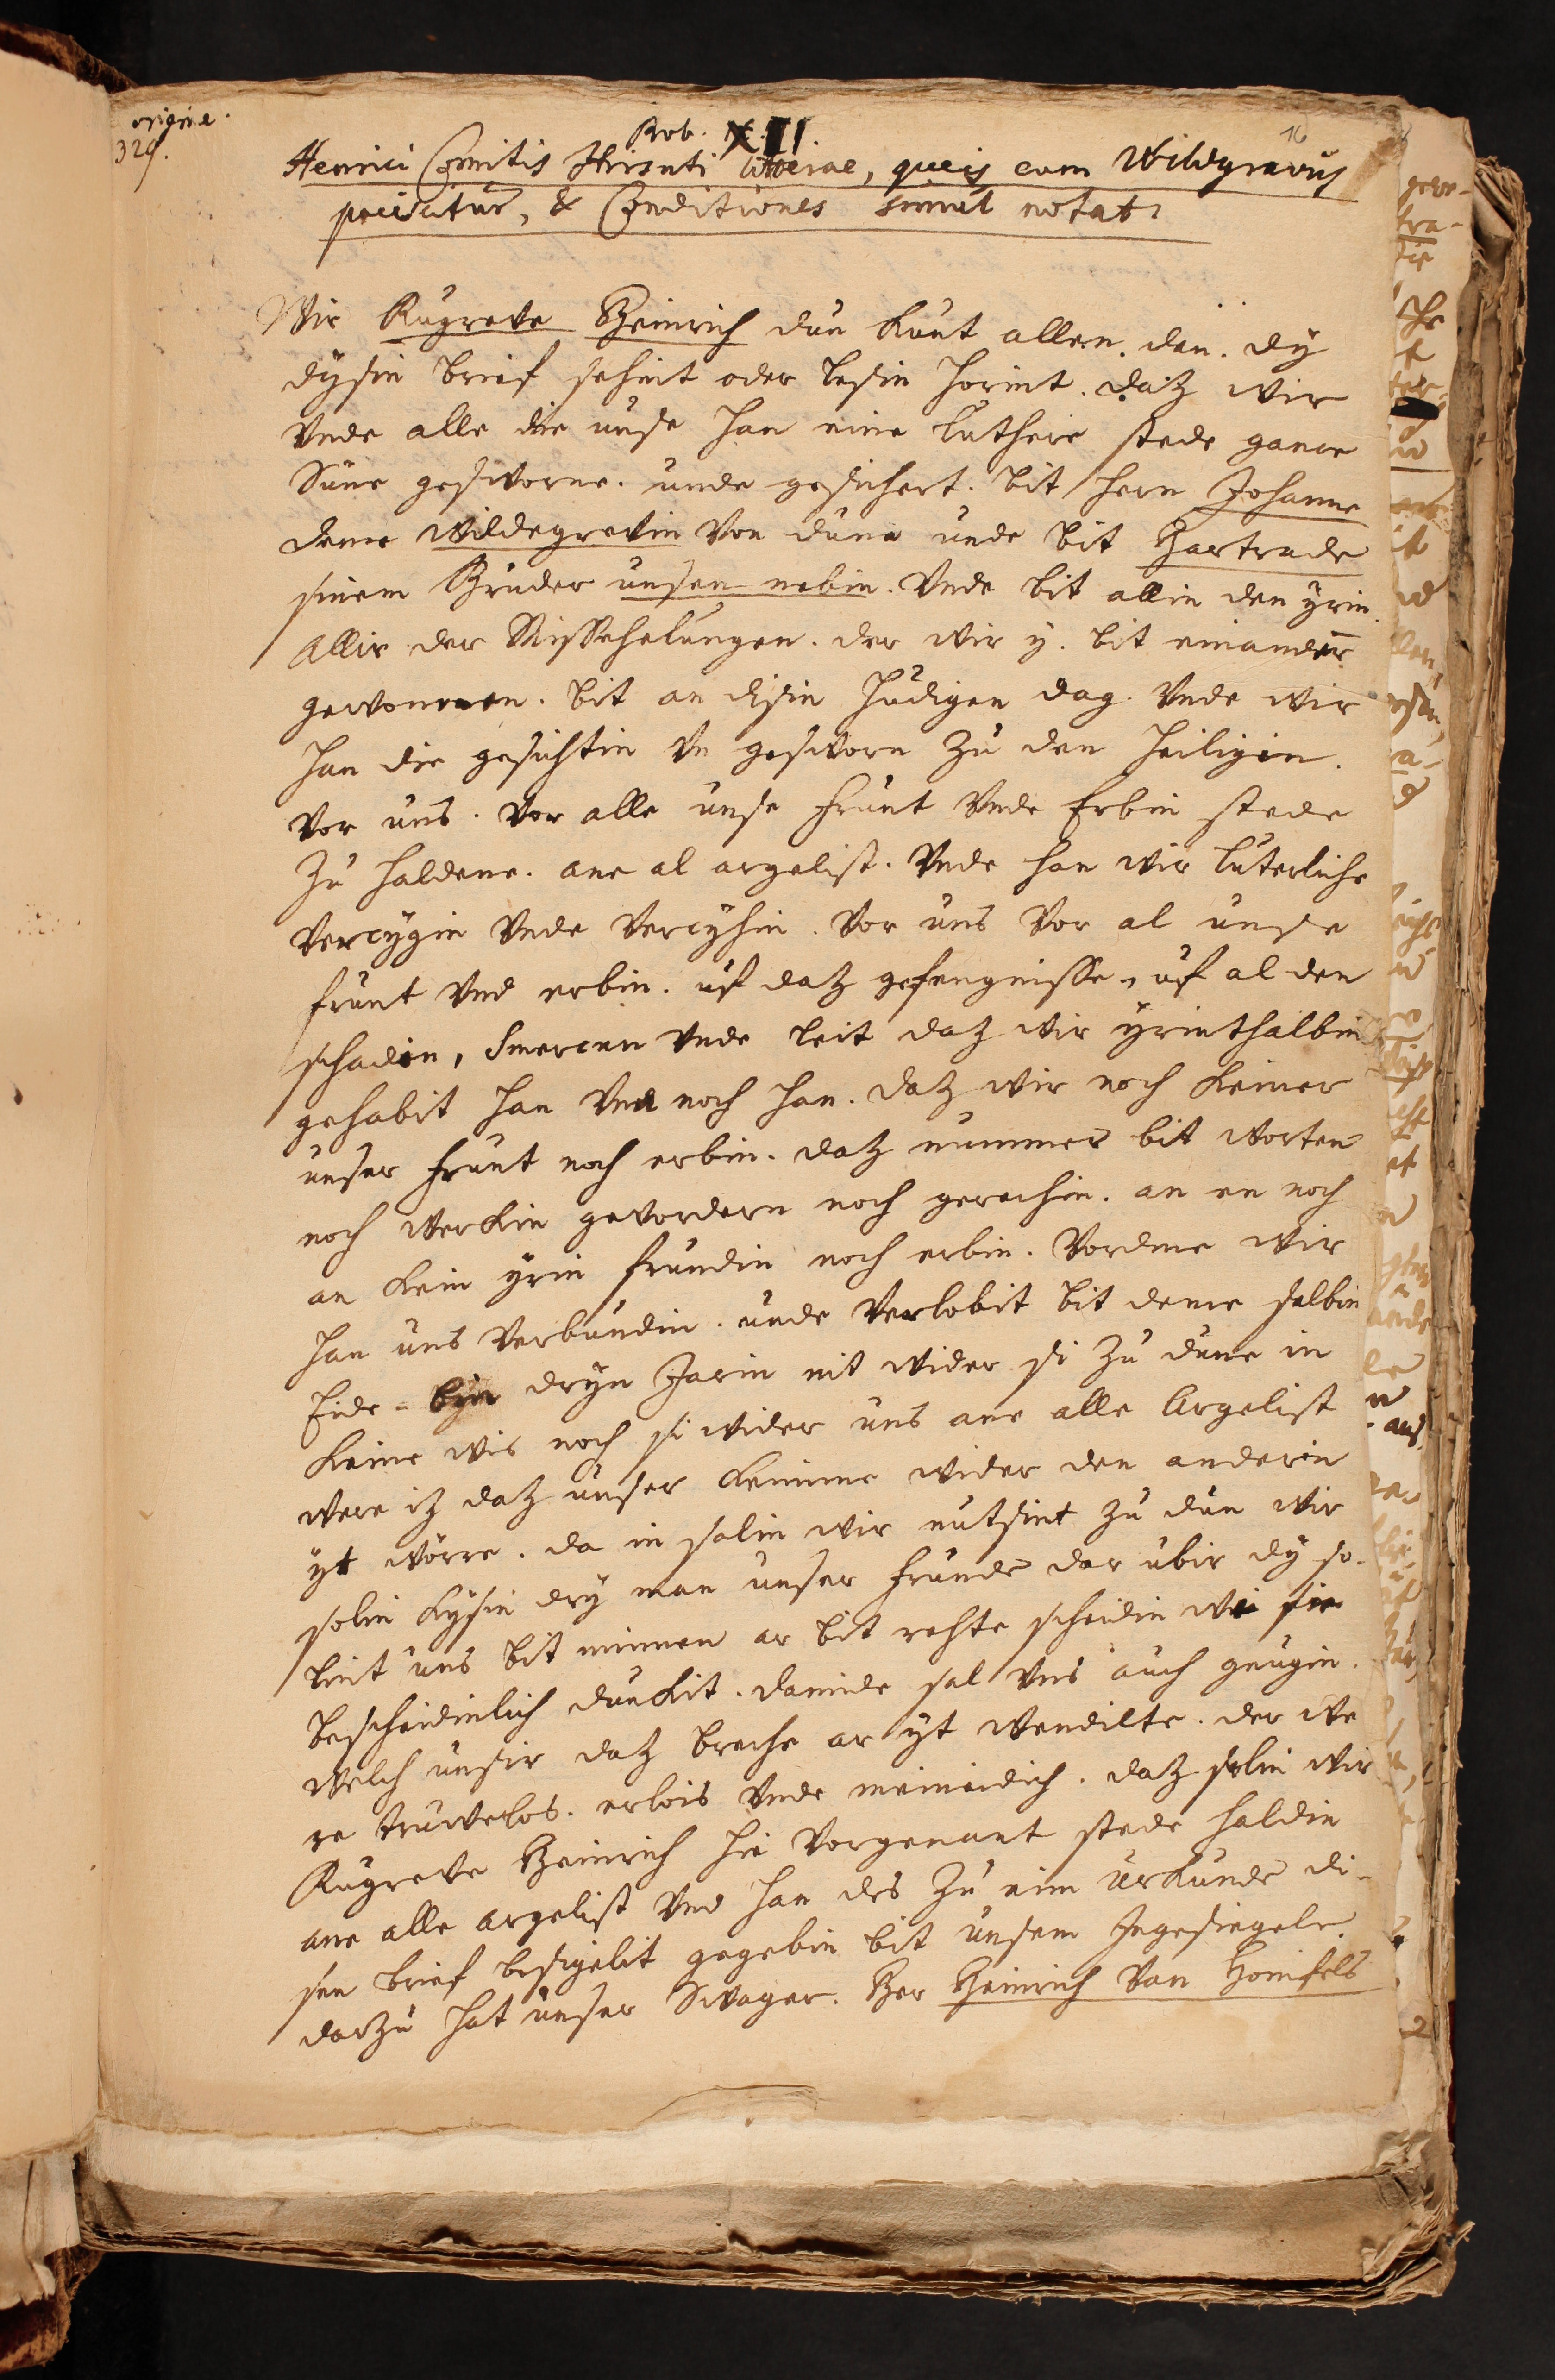 origine.
329.
16
Rub. XII
Henrici Comitis Hirsuti literae, queis cum Wildgravus
paciscitur, & Conditiones simul notat
Wir Rugreve Heinrich dun kunt allen. den. dy
dysin brief sehint oder lesin horint. daz wir
Vnde alle die unse han eine luthere stede gance
Sune gesworne. unde gesichert. bit hern Johanne
deme Wildegrevin von dune unde bit Hartrade
sinem Bruder unsen nebin. Vnde bit allin den yrin
Allir der Missehelungen. der wir y. bit einander
gewonnen. bit an disin hudigen dag. Vnde wir
han die gesichtin un gesworn zu den heiligen.
vor uns. vor alle unse frunt Vnde Erbin stede
zu haldene. ane al argelist. Vnde han wir luterliche
vercygin Vnde vercyhin. vor uns vor al unse
frunt Vnd erbin. uf daz gefengnisse, uf al den
schadin, Smercen Vnde leit daz wir yrinthalbin
gehabit han Vnd noch han. daz wir noch keiner
unser frunt noch erbin. daz nummer bit worten
noch werckin gevordern noch gerechin. an en noch
an kein yrin frundin noch erbin. Vordme wir
han uns verbundin. unde verlobit bit deme selbin
Eide = byn dryn Jarin nit wider si zu dune in
keine wis noch si wider uns ane alle Argelist
were iz daz unser keinme wider den anderin
yt worre. da in solin wir nutsint zu dun wir
solin kysin dry man unser frunde dar ubir dy so-
lint uns bit minnen ar bit rehte scheidin wi sie
bescheidinlich dunckit. damide sal uns auch genugin.
welch unsir daz breche ar yt wendilte. der we
re truwelos. erlois Vnde meineidich. daz solin wir
Rugreve Heinrich hie vorgenant stede haldin
ane alle argelist Vnd han des zu eim urkunde di-
sen brief besigelit gegebin bit unsem Ingesiegele.
darzu hat unser Swager. Her Heinrich van Honifels